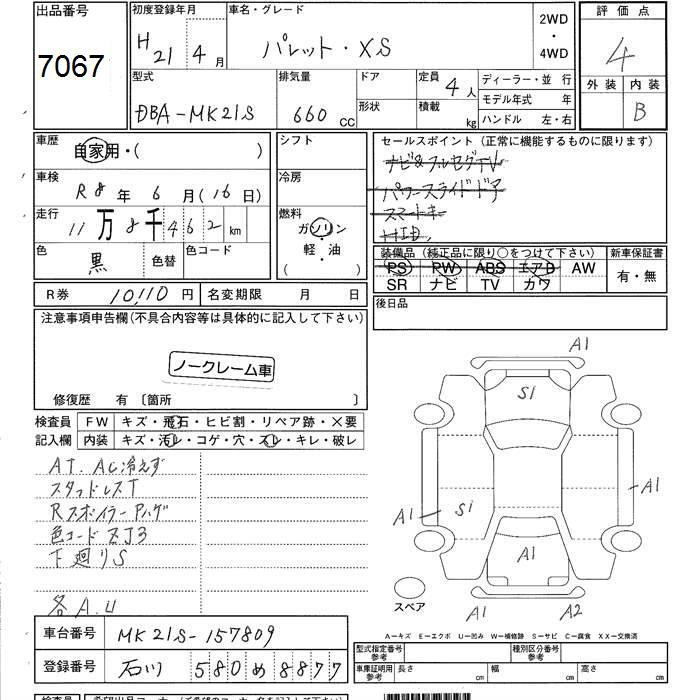 出品番号
7067
初度登録年月
H 21 年 4 月
車名・グレード
パレット・XS
2WD
・
4WD
評価点
4
外装 内装
B
型式
DBA-MK21S
排気量
660 CC
ドア
形状
定員 4 人
積載 kg
ディーラー・並 行
モデル年式 年
ハンドル 左・右
車歴
自家用・( )
シフト
車検
R8年 6月(16日)
冷房
走行
11万8千462km
燃料
ガソリン
軽・油
( )
色
黒
色替
色コード
セールスポイント (正常に機能するものに限ります)
ナビ&フルセグTV
パワースライドドア
スマートキー
HID.
装備品 (純正品に限り○をつけて下さい)
新車保証書
PS PW ABS エアB AW
SR ナビ TV カワ
有・無
R券 10,110 円
名変期限 月 日
後日品
注意事項申告欄(不具合内容等は具体的に記入して下さい)
ノークレーム車
修復歴 有 〔箇所 〕
検査員
記入欄
FW キズ・飛石・ヒビ割・リペア跡・×要
内装 キズ・汚レ・コゲ・穴・スレ・キレ・破レ
AT. AC冷えず
スタッドレスT
Rスポイラー Pハゲ
色コード ZJ3
下廻りS
各A.U
A1
S1
A1
A1
S1
A1
A1
A2
スペア
A―キズ E―エクボ U―凹み W―補修跡 S―サビ C―腐食 XX―交換済
車台番号 MK21S-157809
登録番号 石川 580 め 8877
型式指定番号
参考
種別区分番号
参考
車庫証明用
参考
長さ cm
幅 cm
高さ cm